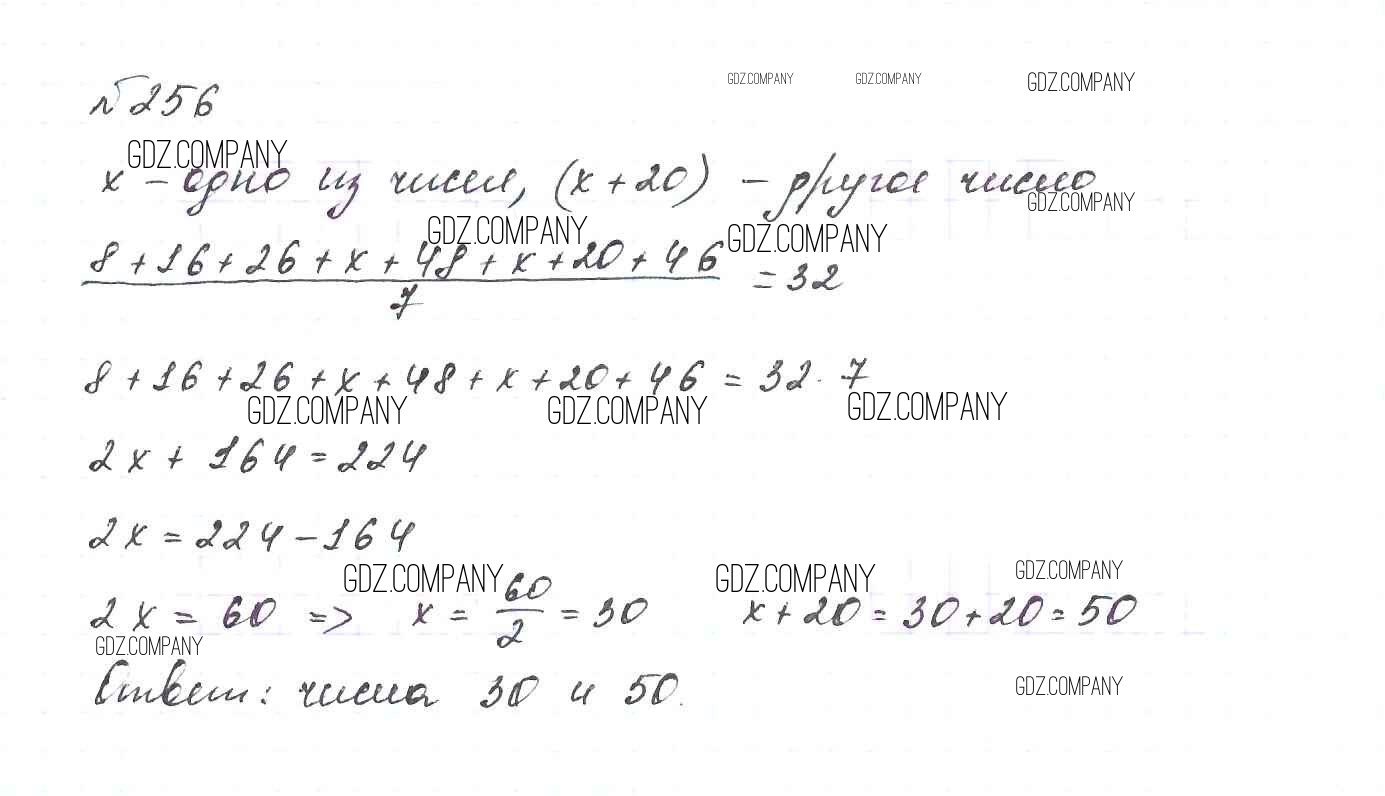 №256
GDZ.COMPANY GDZ.COMPANY GDZ.COMPANY
GDZ.COMPANY
x – одно из чисел, (x + 20) – другое число
GDZ.COMPANY
GDZ.COMPANY GDZ.COMPANY
8 + 16 + 26 + x + 48 + x + 20 + 46
7
= 32
8 + 16 + 26 + x + 48 + x + 20 + 46 = 32 · 7
GDZ.COMPANY GDZ.COMPANY GDZ.COMPANY
2x + 164 = 224
2x = 224 – 164
GDZ.COMPANY GDZ.COMPANY GDZ.COMPANY
2x = 60 => x = 60/2 = 30 x + 20 = 30 + 20 = 50
GDZ.COMPANY
Ответ: числа 30 и 50.
GDZ.COMPANY